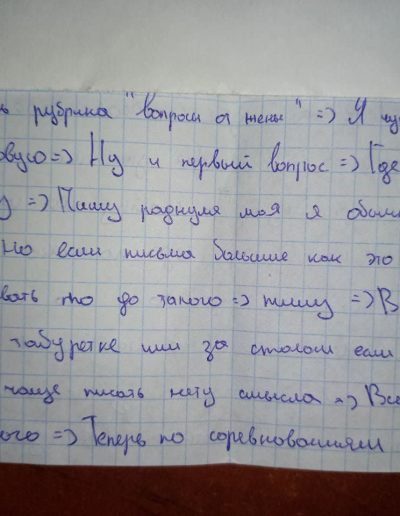 рубрика "вопросы от жены" => Я
=> Ну и первый вопрос => Где
=> Пишу роднуля моя я обычн
Но если письма большие как это
вать то до закого => пишу => В
табуретке или за столом если
чаще писать нету смысла => Все
ого => Теперь по соревнованиям